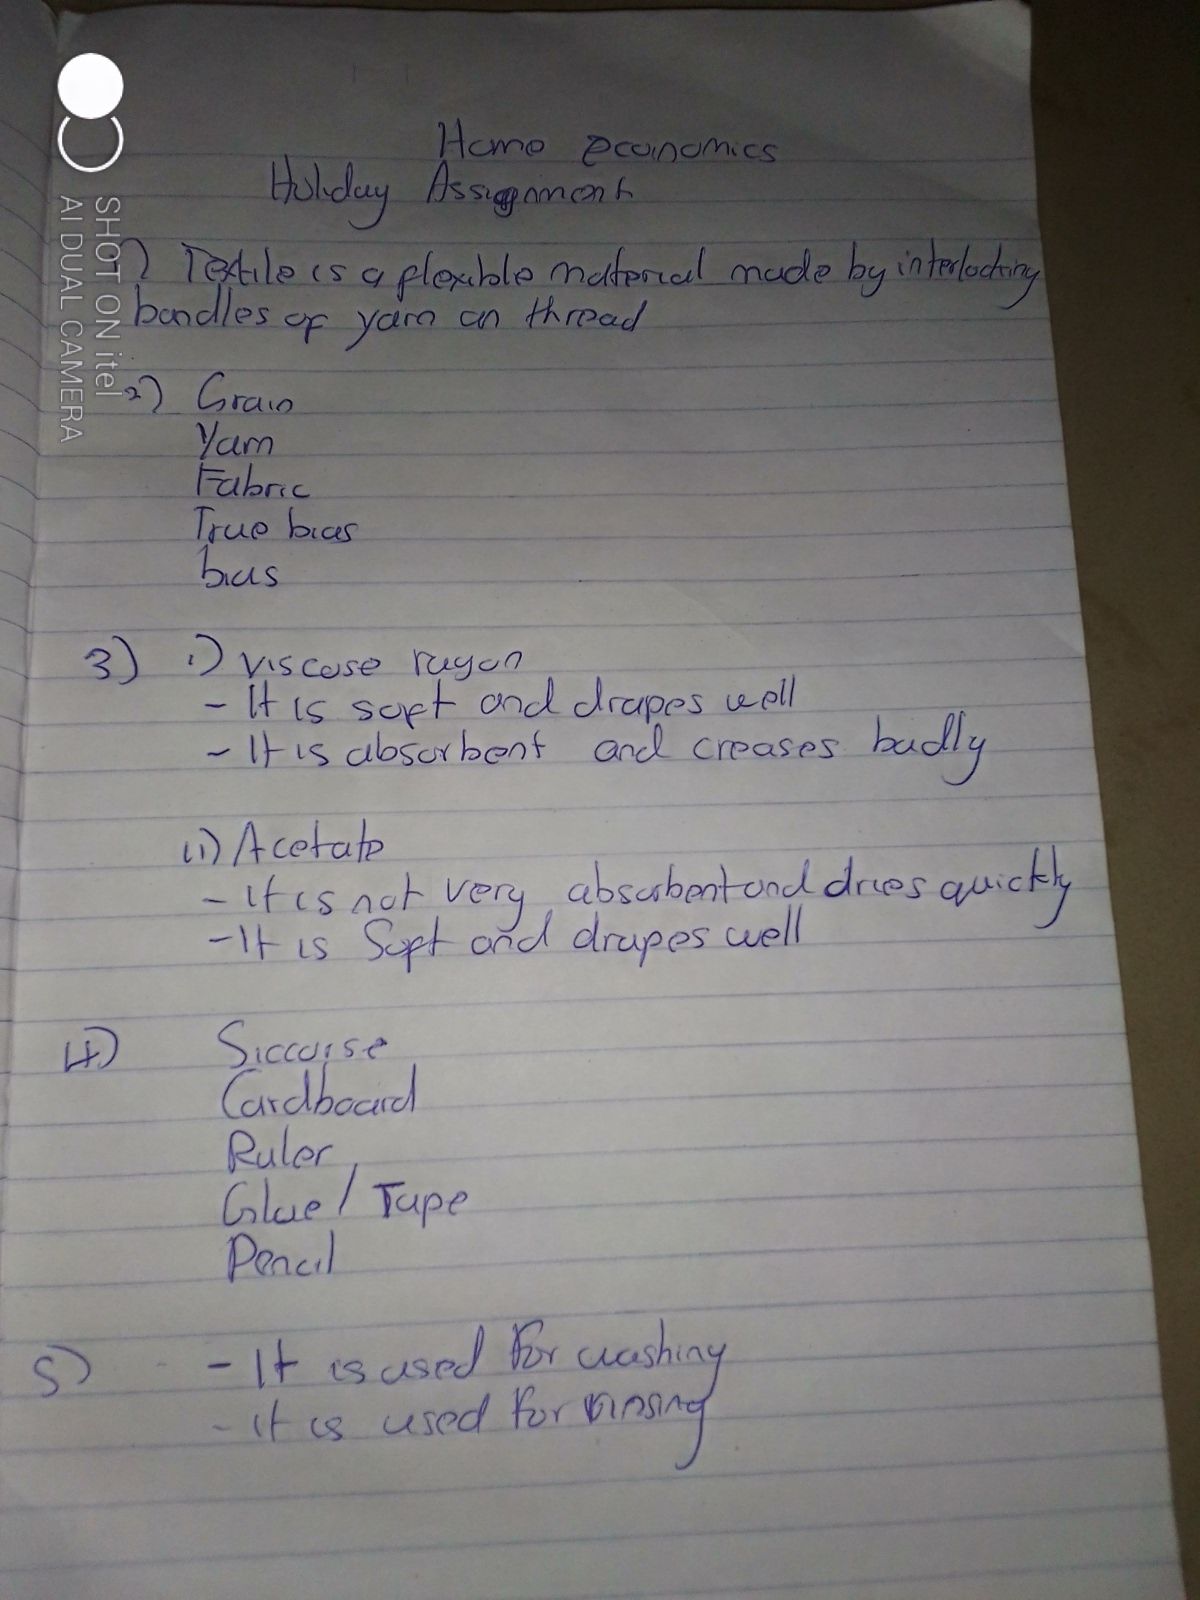 Home economics
Holiday Assignment
1) Textile is a flexible material made by interlocking
bundles of yarn an thread
2) Grain
Yarn
Fabric
True bias
bias
3) i) Viscose rayon
- It is soft and drapes well
- It is absorbent and creases badly
ii) Acetate
- It is not very absorbent and dries quickly
- It is Soft and drapes well
4) Siccorse
Cardboard
Ruler
Glue / Tape
Pencil
5) - It is used for washing
- it is used for rinsing
SHOT ON itel
AI DUAL CAMERA